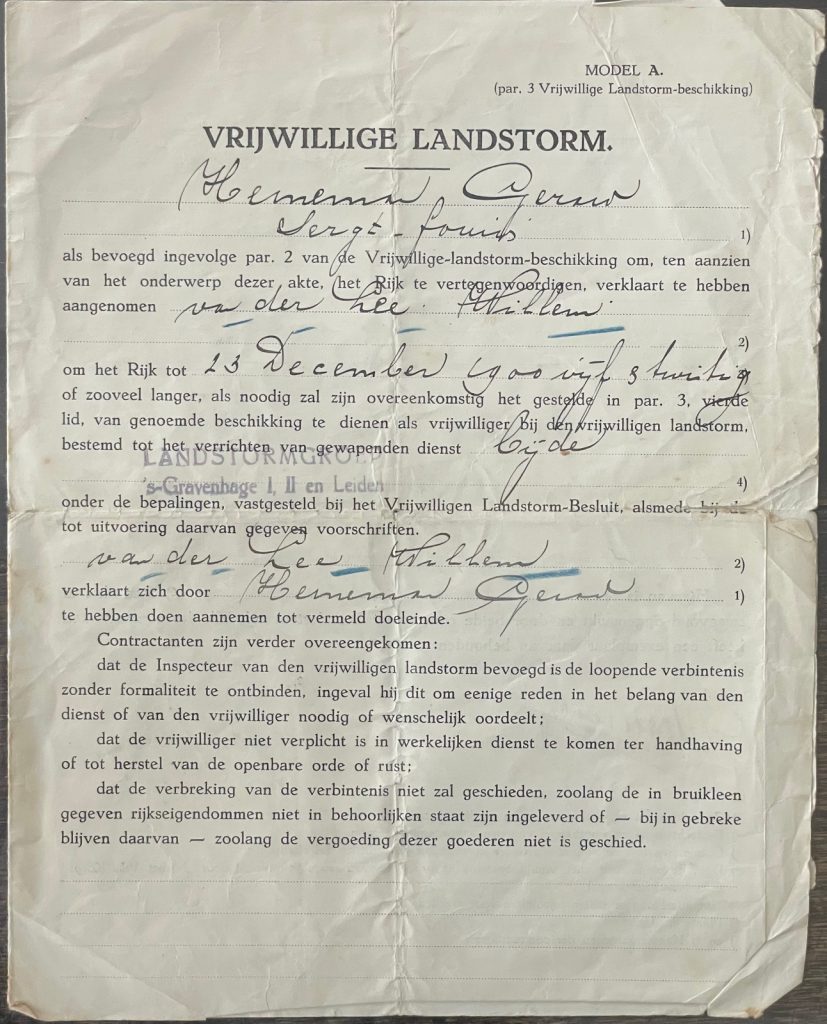 MODEL A.
(par. 3 Vrijwillige Landstorm-beschikking)
VRIJWILLIGE LANDSTORM.
Heineman Gerard
Sergt-
1)
als bevoegd ingevolge par. 2 van de Vrijwillige-landstorm-beschikking om, ten aanzien
van het onderwerp dezer akte, het Rijk te vertegenwoordigen, verklaart te hebben
aangenomen van der Lee Willem
2)
om het Rijk tot 23 December 1900 vijf & twintig
of zooveel langer, als noodig zal zijn overeenkomstig het gestelde in par. 3, vierde
lid, van genoemde beschikking te dienen als vrijwilliger bij den vrijwilligen landstorm,
bestemd tot het verrichten van gewapenden dienst bij de
LANDSTORMGROEP
's-Gravenhage I, II en Leiden
4)
onder de bepalingen, vastgesteld bij het Vrijwilligen Landstorm-Besluit, alsmede bij de
tot uitvoering daarvan gegeven voorschriften.
van der Lee Willem 2)
verklaart zich door Heineman Gerard 1)
te hebben doen aannemen tot vermeld doeleinde.
Contractanten zijn verder overeengekomen:
dat de Inspecteur van den vrijwilligen landstorm bevoegd is de loopende verbintenis
zonder formaliteit te ontbinden, ingeval hij dit om eenige reden in het belang van den
dienst of van den vrijwilliger noodig of wenschelijk oordeelt;
dat de vrijwilliger niet verplicht is in werkelijken dienst te komen ter handhaving
of tot herstel van de openbare orde of rust;
dat de verbreking van de verbintenis niet zal geschieden, zoolang de in bruikleen
gegeven rijkseigendommen niet in behoorlijken staat zijn ingeleverd of — bij in gebreke
blijven daarvan — zoolang de vergoeding dezer goederen niet is geschied.